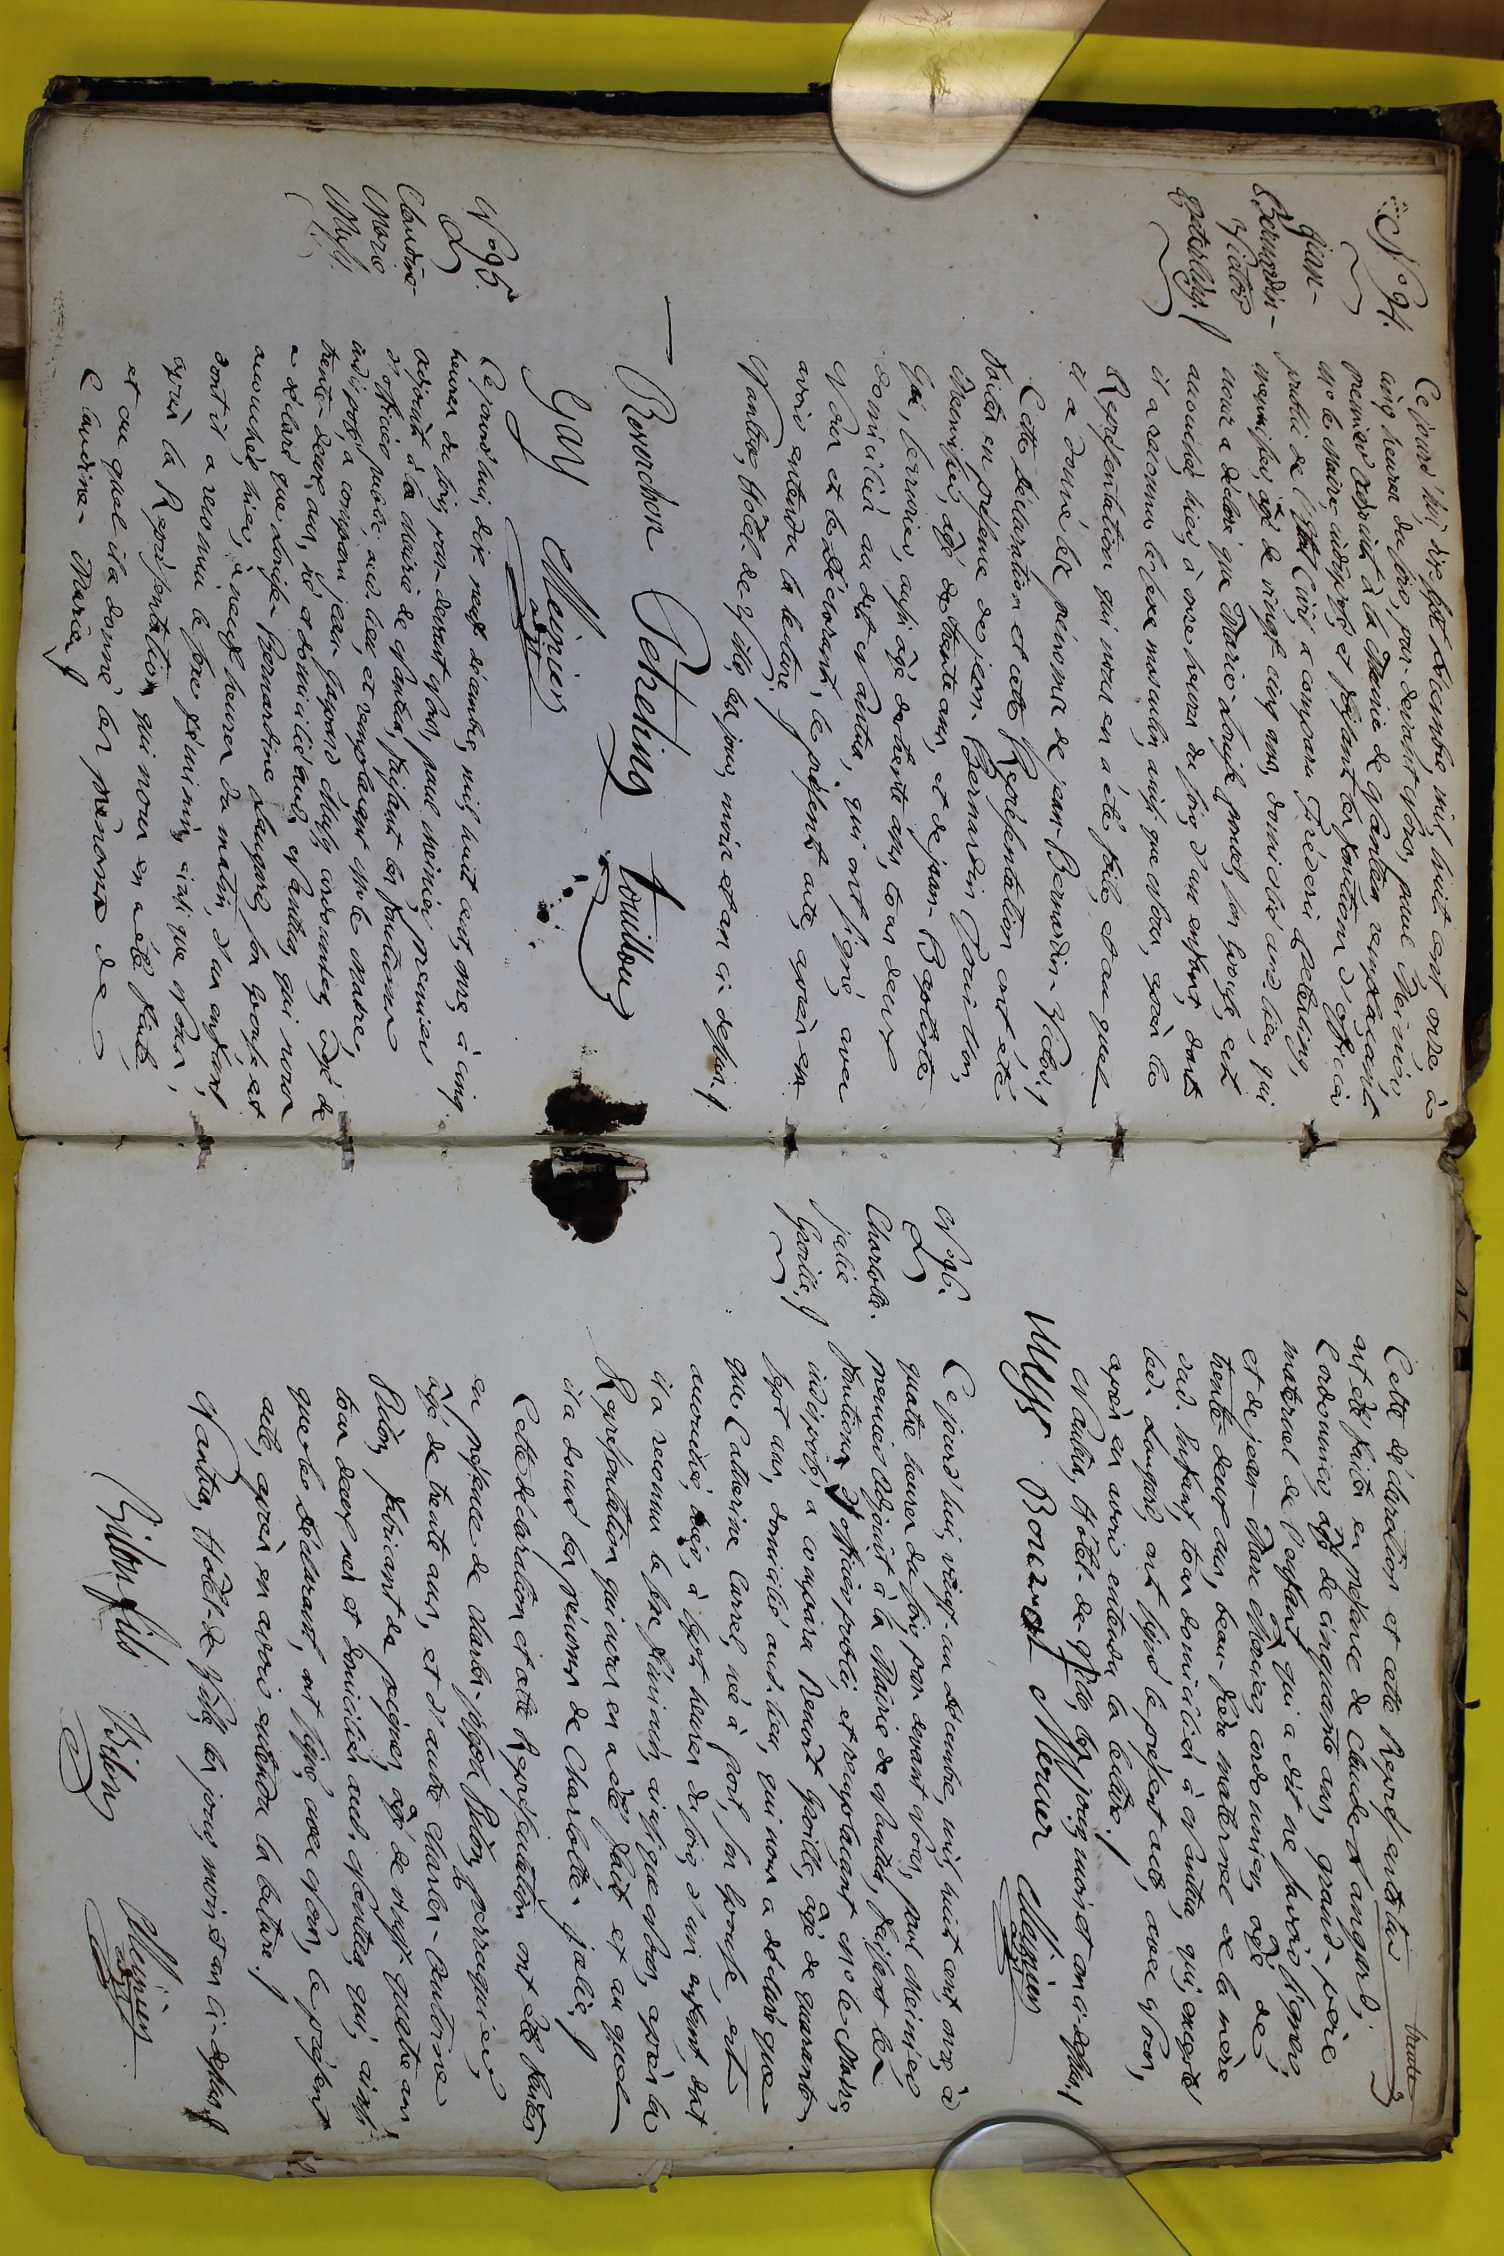 N.º 94.
jean-
Bernardin-
Victor
Peterling.
Ce jourd'hui, dix sept décembre, mil huit cent onze, à
cinq heures du soir, par devant Nous, paul Meinier,
premier adjoint à la Mairie de Nantua, remplaçant
Mr le Maire, indisposé, et faisant les fonctions d'officier
public de l'Etat Civil, a comparu Fréderic Peterling,
menuisier, âgé de vingt cinq ans, domicilié aud. lieu, qui
nous a déclaré que Marie-Louise son Epouse, est
accouchée hier, à onze heures du soir, d'un enfant, dont
il a reconnu le sexe masculin, ainsi que Nous, après la
Représentation qui nous en a été faite, et au quel
il a donné les prénoms de jean-Bernardin-Victor,
Cette déclaration et cette Représentation ont été
faites en présence de jean-Bernardin Touillon,
menuisier, âgé de trente ans, et de jean-Baptiste
Gai, serrurier, aussi âgé de trente ans, tous deux
domiciliés au dit Nantua, qui ont signé, avec
Nous et le déclarant, le présent acte, après en
avoir entendu la lecture,
Nantua, hôtel-de-Ville, les jour, mois et an ci-dessus.
Peteling touillon
Gay Meinier
adjt
N.º 95.
Claudine-
Marie
Ce jourd'hui, dix-neuf décembre, mil huit cent onze, à cinq
heures du soir, par-devant Nous, paul Meinier, premier
adjoint à la Mairie de Nantua, faisant les fonctions
d'officier public aud. lieu, et remplaçant Mr le Maire,
indisposé, a comparu jean cordonnier, âgé de
trente-deux ans, né et domicilié aud. Nantua, qui nous
a déclaré que Louise-Bernardine Langard, son Epouse, est
accouchée, hier, à neuf heures du matin, d'un enfant,
dont il a reconnu le sexe féminin, ainsi que Nous,
après la Représentation qui nous en a été faite,
et au quel il a donné les prénoms de
Claudine-Marie,
trente
Cette déclaration et cette Représentation
ont été faites en présence de Claude Langard,
Cordonnier, âgé de cinquante ans, grand-père
maternel de l'enfant, qui a dit ne savoir signer,
et de jean-Marc Mercier, cordonnier, âgé de
trente-deux ans, beau-frère maternel de la mère
dud. Enfant, tous domiciliés à Nantua, qui, excepté
led. Langard, ont signé le présent acte, avec Nous,
après en avoir entendu la lecture.
Nantua, Hôtel-de-Ville, les jour, mois et an ci-dessus,
Meinier
adjt
N.º 96.
Charlotte-
julie
Gorille,
Ce jourd'hui, vingt-un décembre, mil huit cent onze, à
quatre heures du soir, par devant Nous, paul Meinier
premier Adjoint à la Mairie de Nantua, faisant les
fonctions d'officier public, et remplaçant Mr le Maire,
indisposé, a comparu Benoit Gorille, âgé de quarante
sept ans, domicilié aud. lieu, qui nous a déclaré que
que Catherine Carrel, née à port, son Epouse, est
accouchée, hier, à sept heures du soir, d'un enfant, dont
il a reconnu le sexe féminin, ainsi que Nous, après la
Représentation qui nous en a été faite et au quel
il a donné les prénoms de Charlotte-julie,
Cette déclaration et cette Représentation ont été faites
en présence de Charles-joseph perruquier,
âgé de trente ans, et d'autre Charles-Antoine
fabricant de peignes, âgé de vingt quatre ans
tous deux nés et domiciliés aud. Nantua, qui, ainsi
que le déclarant, ont signé, avec Nous, le présent
acte, après en avoir entendu la lecture.
Nantua, Hôtel-de-Ville, les jour, mois et an ci-dessus,
Meinier
adjt